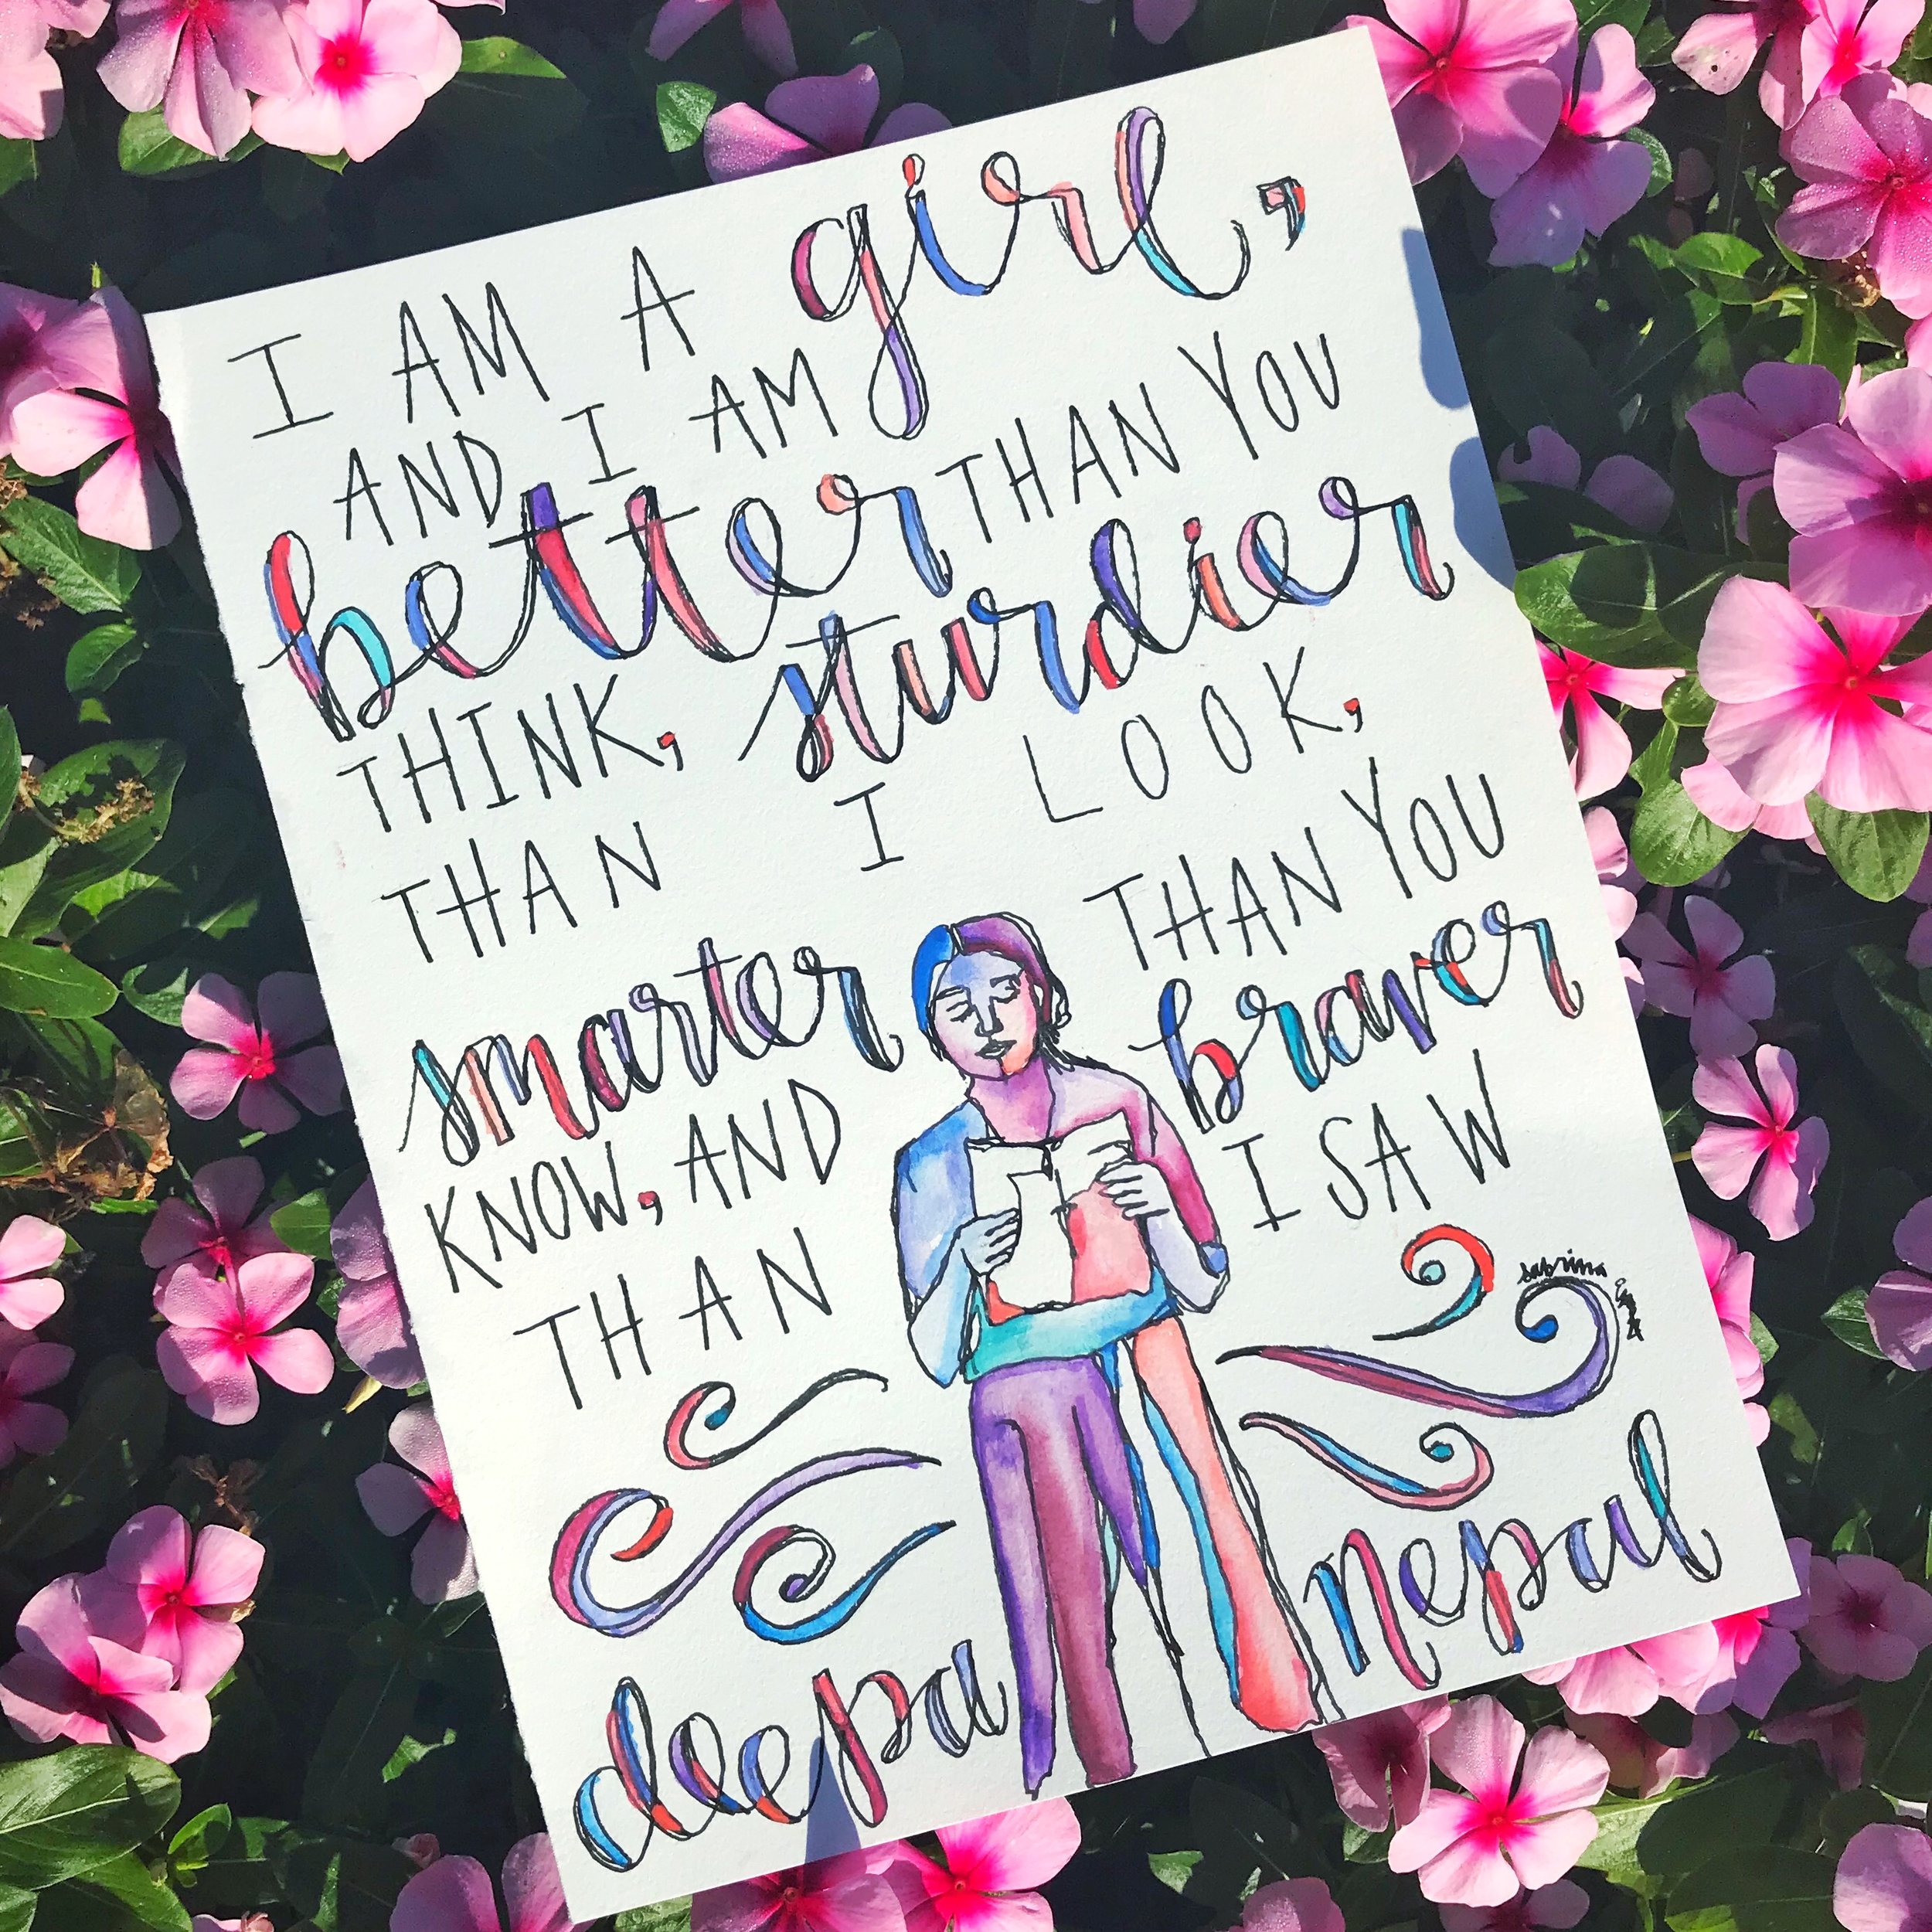 I AM A girl,
AND I AM
better THAN YOU
THINK, sturdier
THAN I LOOK,
smarter THAN YOU
KNOW, AND braver
THAN I SAW
sabrina
deepa nepal